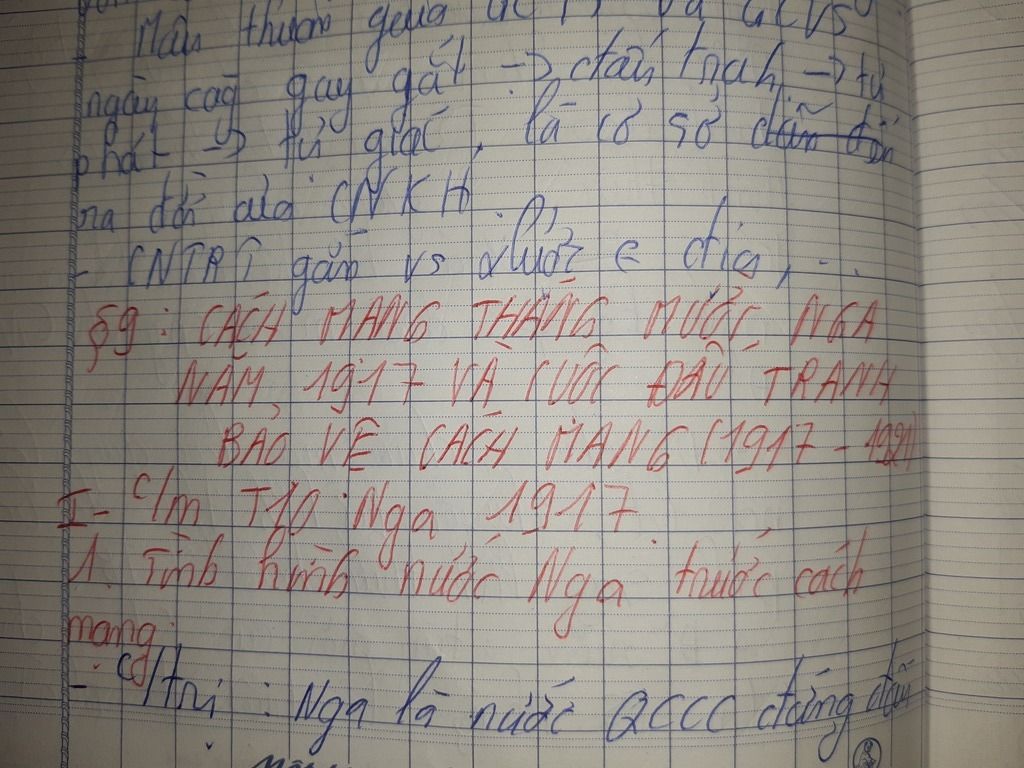 - Mâu thuẫn giữa GCTS và GCVS
ngày càg gay gắt -> đấu tranh -> tự
phát -> tự giác, là cơ sở dẫn đến
ra đời của CNXH
- CNTB gắn vs xlược
§9: CÁCH MẠNG THÁNG MƯỜI NGA
NĂM 1917 VÀ CUỘC ĐẤU TRANH
BẢO VỆ CÁCH MẠNG (1917 - 1921)
I- C/m T10 Nga 1917.
1. Tình hình nước Nga trước cách
mạng.
- C/trị : Nga là nước QCCC đứng đầu